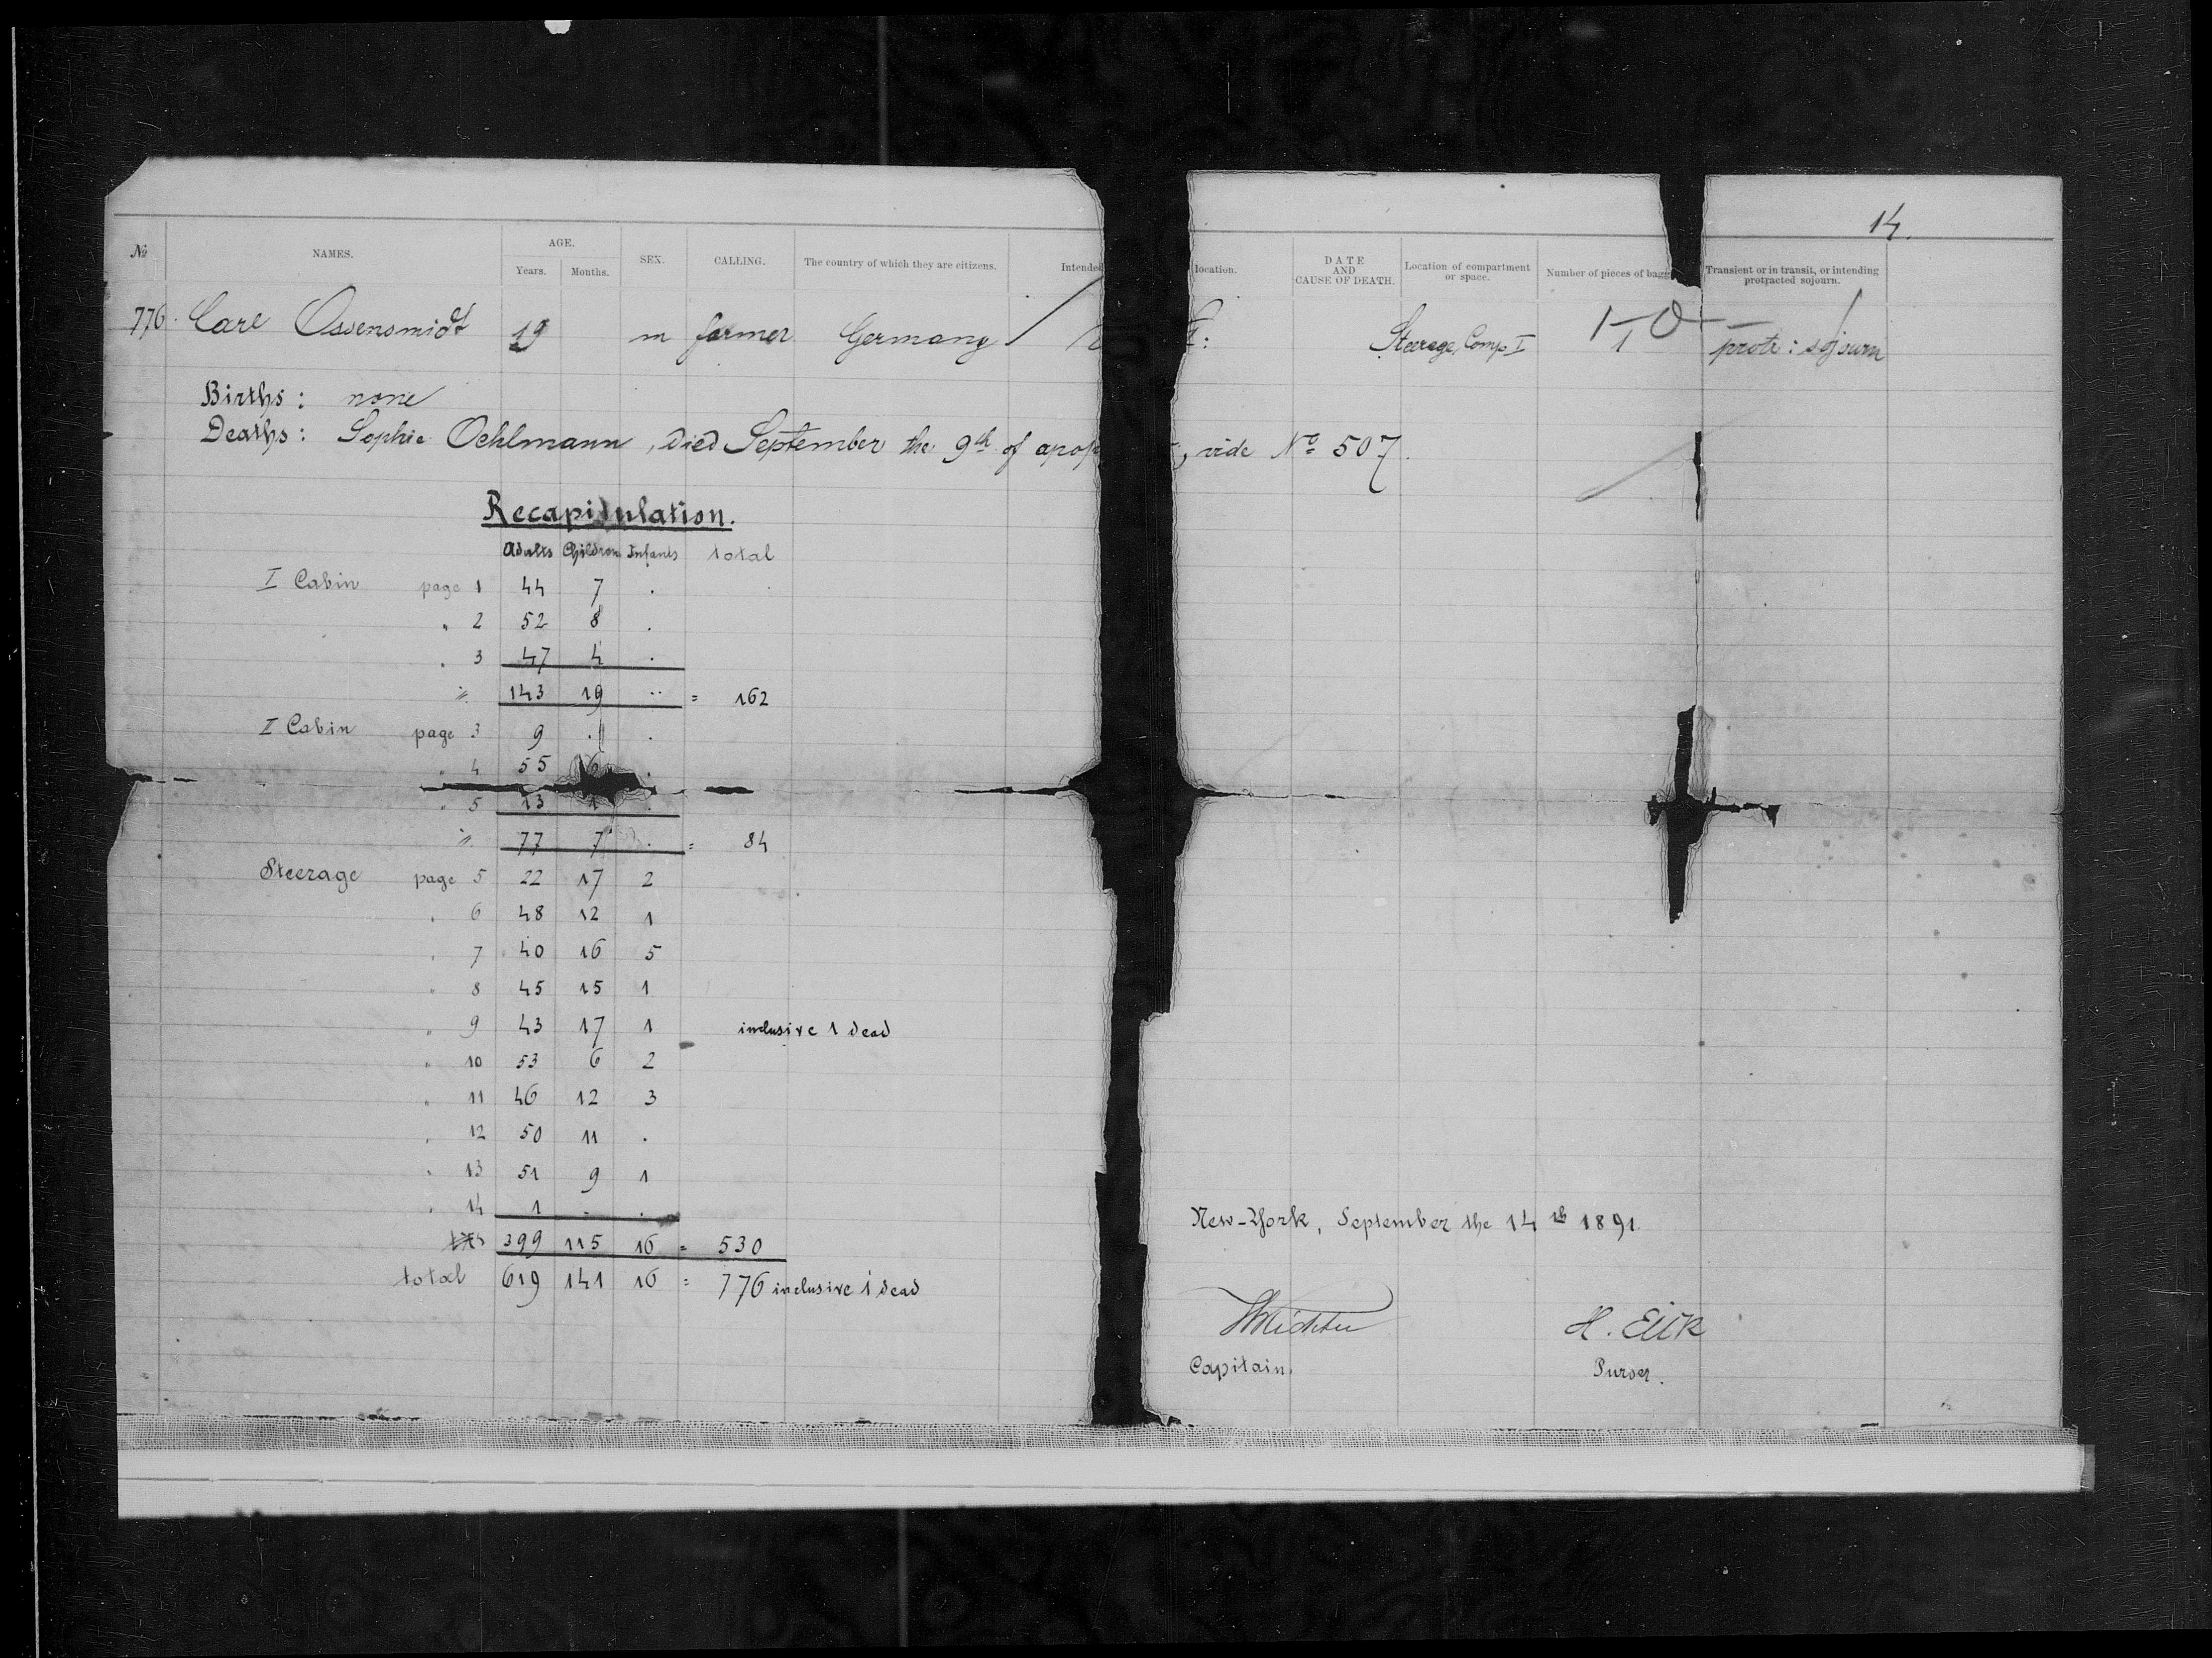 14.
№ NAMES. AGE. Years. Months. SEX. CALLING. The country of which they are citizens. Intended location. DATE AND CAUSE OF DEATH. Location of compartment or space. Number of pieces of Transient or in transit, or intending protracted sojourn.
776. Carl Ossensmidt 19 m farmer Germany Steerage, Comp. I 1 protr: sojourn
Births: none
Deaths: Sophie Oehlmann, died September the 9th of vide No 507.
Recapitulation.
Adults Children Infants total
I Cabin page 1 44 7 .
" 2 52 8 .
" 3 47 4 .
143 19 .. = 162
II Cabin page 3 9 . .
" 4 55 6 .
" 5 13 1 .
77 7 . = 84
Steerage page 5 22 17 2
" 6 48 12 1
" 7 40 16 5
" 8 45 15 1
" 9 43 17 1 inclusive 1 dead
" 10 53 6 2
" 11 46 12 3
" 12 50 11 .
" 13 51 9 1
" 14 1 . .
399 115 16 = 530
total 619 141 16 = 776 inclusive 1 dead
New-York, September the 14th 1891.
H. Eick
Capitain. Purser.